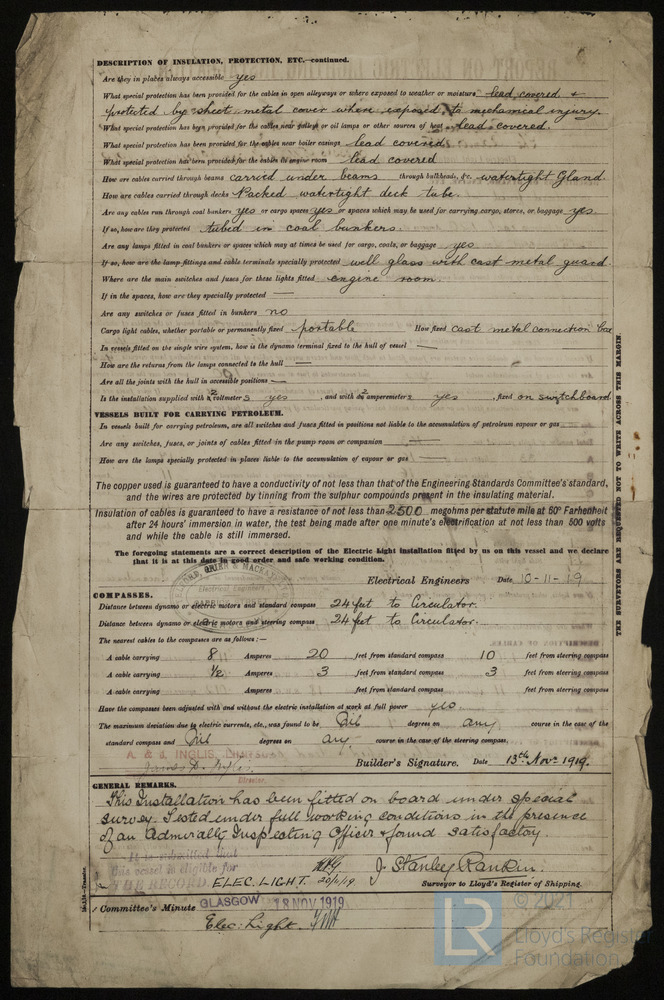 DESCRIPTION OF INSULATION, PROTECTION, ETC.—continued.
Are they in places always accessible yes
What special protection has been provided for the cables in open alleyways or where exposed to weather or moisture lead covered &
protected by sheet metal cover where exposed to mechanical injury.
What special protection has been provided for the cables near galleys or oil lamps or other sources of heat lead covered.
What special protection has been provided for the cables near boiler casings lead covered
What special protection has been provided for the cables in engine room lead covered
How are cables carried through beams carried under beams through bulkheads, &c. watertight Gland
How are cables carried through decks Packed watertight deck tube.
Are any cables run through coal bunkers yes or cargo spaces yes or spaces which may be used for carrying cargo, stores, or baggage yes.
If so, how are they protected tubed in coal bunkers.
Are any lamps fitted in coal bunkers or spaces which may at times be used for cargo, coals, or baggage yes
If so, how are the lamp fittings and cable terminals specially protected well glass with cast metal guard
Where are the main switches and fuses for these lights fitted engine room.
If in the spaces, how are they specially protected —
Are any switches or fuses fitted in bunkers no
Cargo light cables, whether portable or permanently fixed portable How fixed cast metal connection box
In vessels fitted on the single wire system, how is the dynamo terminal fixed to the hull of vessel —
How are the returns from the lamps connected to the hull —
Are all the joints with the hull in accessible positions —
Is the installation supplied with 2 voltmeters yes , and with 2 amperemeters yes , fixed on switchboard
VESSELS BUILT FOR CARRYING PETROLEUM.
In vessels built for carrying petroleum, are all switches and fuses fitted in positions not liable to the accumulation of petroleum vapour or gas —
Are any switches, fuses, or joints of cables fitted in the pump room or companion —
How are the lamps specially protected in places liable to the accumulation of vapour or gas —
The copper used is guaranteed to have a conductivity of not less than that of the Engineering Standards Committee's standard,
and the wires are protected by tinning from the sulphur compounds present in the insulating material.
Insulation of cables is guaranteed to have a resistance of not less than 2500 megohms per statute mile at 60° Farhenheit
after 24 hours' immersion in water, the test being made after one minute's electrification at not less than 500 volts
and while the cable is still immersed.
The foregoing statements are a correct description of the Electric Light installation fitted by us on this vessel and we declare
that it is at this date in good order and safe working condition.
Electrical Engineers
Electrical Engineers Date 10-11-19
COMPASSES.
Distance between dynamo or electric motors and standard compass 24 feet to Circulator.
Distance between dynamo or electric motors and steering compass 24 feet to Circulator.
The nearest cables to the compasses are as follows:—
A cable carrying 8 Amperes 20 feet from standard compass 10 feet from steering compass
A cable carrying ½ Amperes 3 feet from standard compass 3 feet from steering compass
A cable carrying Amperes feet from standard compass feet from steering compass
Have the compasses been adjusted with and without the electric installation at work at full power yes
The maximum deviation due to electric currents, etc., was found to be Nil degrees on any course in the case of the
standard compass and Nil degrees on any course in the case of the steering compass.
A. & J. INGLIS, LIMITED
Director.
Builder's Signature. Date 13th Nov. 1919.
GENERAL REMARKS.
This Installation has been fitted on board under special
survey. Tested under full working conditions in the presence
of an Admiralty Inspecting Officer & found satisfactory.
It is submitted that
this vessel is eligible for
THE RECORD. ELEC. LIGHT. 20/11/19
J. Stanley Rankin.
Surveyor to Lloyd's Register of Shipping.
Committee's Minute GLASGOW 18 NOV 1919
Elec: Light.
THE SURVEYORS ARE REQUESTED NOT TO WRITE ACROSS THIS MARGIN
© 2021
LR Lloyd's Register
Foundation